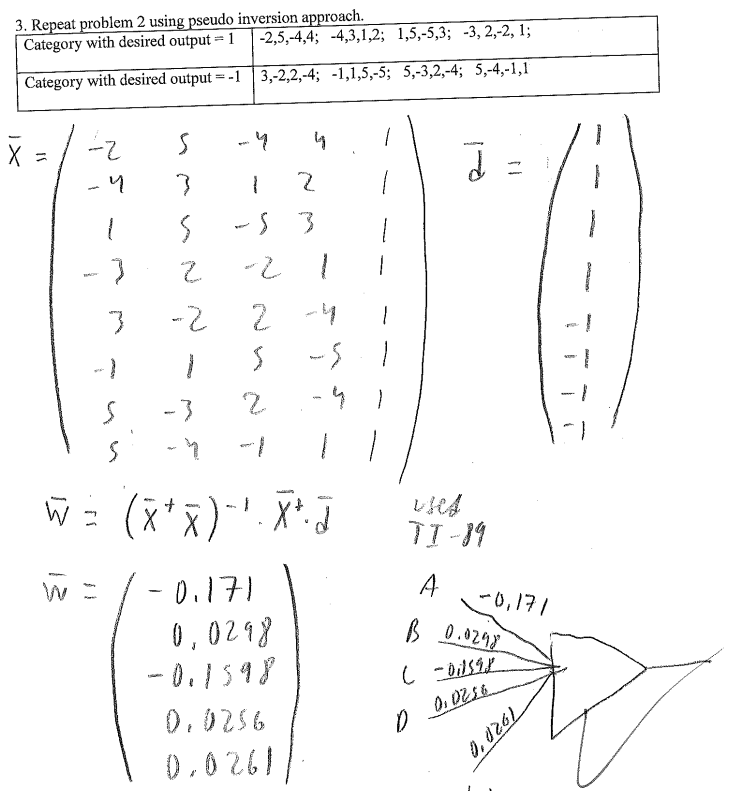 3. Repeat problem 2 using pseudo inversion approach.
Category with desired output = 1 -2,5,-4,4; -4,3,1,2; 1,5,-5,3; -3, 2,-2, 1;
Category with desired output = -1 3,-2,2,-4; -1,1,5,-5; 5,-3,2,-4; 5,-4,-1,1
X̄ = d̄ =
-2 5 -4 4 1 1
-4 3 1 2 1 1
1 5 -5 3 1 1
-3 2 -2 1 1 1
3 -2 2 -4 1 -1
-1 1 5 -5 1 -1
5 -3 2 -4 1 -1
5 -4 -1 1 1 -1
w̄ = (X̄ᵗ X̄)⁻¹ · X̄ᵗ · d̄ used
TI-89
w̄ = -0.171
0.0298
-0.1598
0.0256
0.0261
A -0.171
B 0.0298
C -0.1598
D 0.0256
0.0261